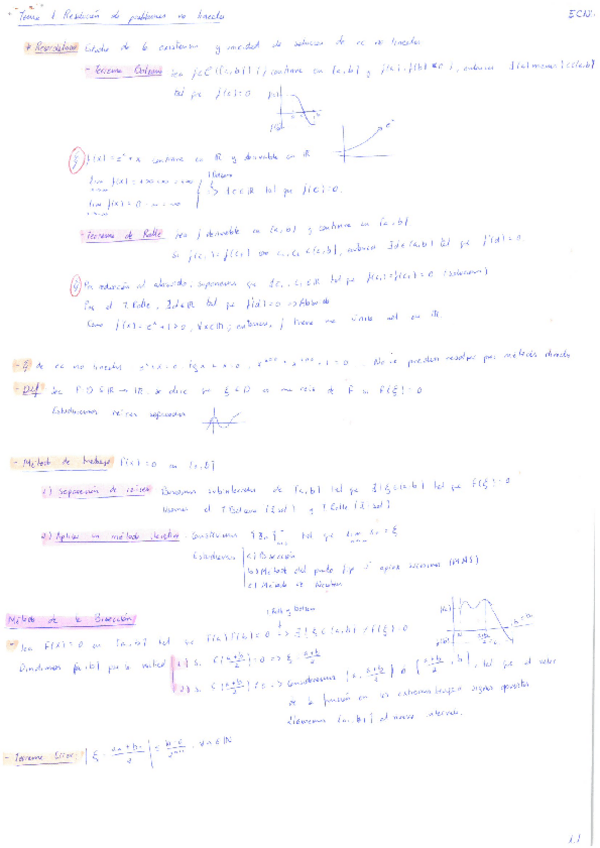 - Tema 1 Resolución de problemas no lineales
ECN.
* Recordatorio Estudio de la existencia y unicidad de solución de ec no lineales
- Teorema Bolzano Sea f∈C([a,b]) f(a)·f(b)<0, entonces ∃ al menos c∈(a,b)
tal que f(c)=0
f(x)=e^x+x continua en ℝ y derivable en ℝ
lim f(x)=+∞
lim f(x)=0-∞=-∞
∃c∈ℝ tal que f(c)=0.
- Teorema de Rolle Sea f derivable en (a,b) y continua en [a,b]
Si f(c₁)=f(c₂) con c₁,c₂∈[a,b], entonces ∃d∈(a,b) tal que f'(d)=0
Por reducción al absurdo, supongamos que ∃c₁,c₂∈ℝ tal que f(c₁)=f(c₂)=0
Por el T.Rolle, ∃d∈ℝ tal que f'(d)=0 → Absurdo
Como f'(x)=e^x+1>0, ∀x∈ℝ, entonces f tiene una única raíz en ℝ.
- Ej de ec no lineales No se pueden resolver por métodos directos
- Def Sea F:D⊆ℝ→ℝ, se dice que ξ∈D es una raíz de F si F(ξ)=0
Estudiaremos raíces separadas
- Método de trabajo F(x)=0 en [a,b]
1) Separación de raíces Buscamos subintervalos de [a,b] tal que ∃!ξ∈(a,b) tal que F(ξ)=0
Usamos el T.Bolzano y T.Rolle
2) Aplicar un método iterativo Construimos tal que lim xₙ=ξ
Estudiaremos
a) Bisección
b) Método del punto fijo ó aprox sucesivas (MAS)
c) Método de Newton
Método de la Bisección
Sea F(x)=0 en [a,b] tal que F(a)F(b)<0 => ∃!ξ∈(a,b) / F(ξ)=0
Dividimos [a,b] por la mitad
1) Si F((a+b)/2)=0 => ξ=(a+b)/2
2) Si F((a+b)/2)≠0 => Consideramos [a,(a+b)/2] o [(a+b)/2,b], tal que el valor
de la función en los extremos tengan signos opuestos
Llamamos [a₁,b₁] al nuevo intervalo.
- Teorema Error: |ξ-(aₙ+bₙ)/2| ≤ (b-a)/2ⁿ⁺¹, ∀n∈ℕ
1.1